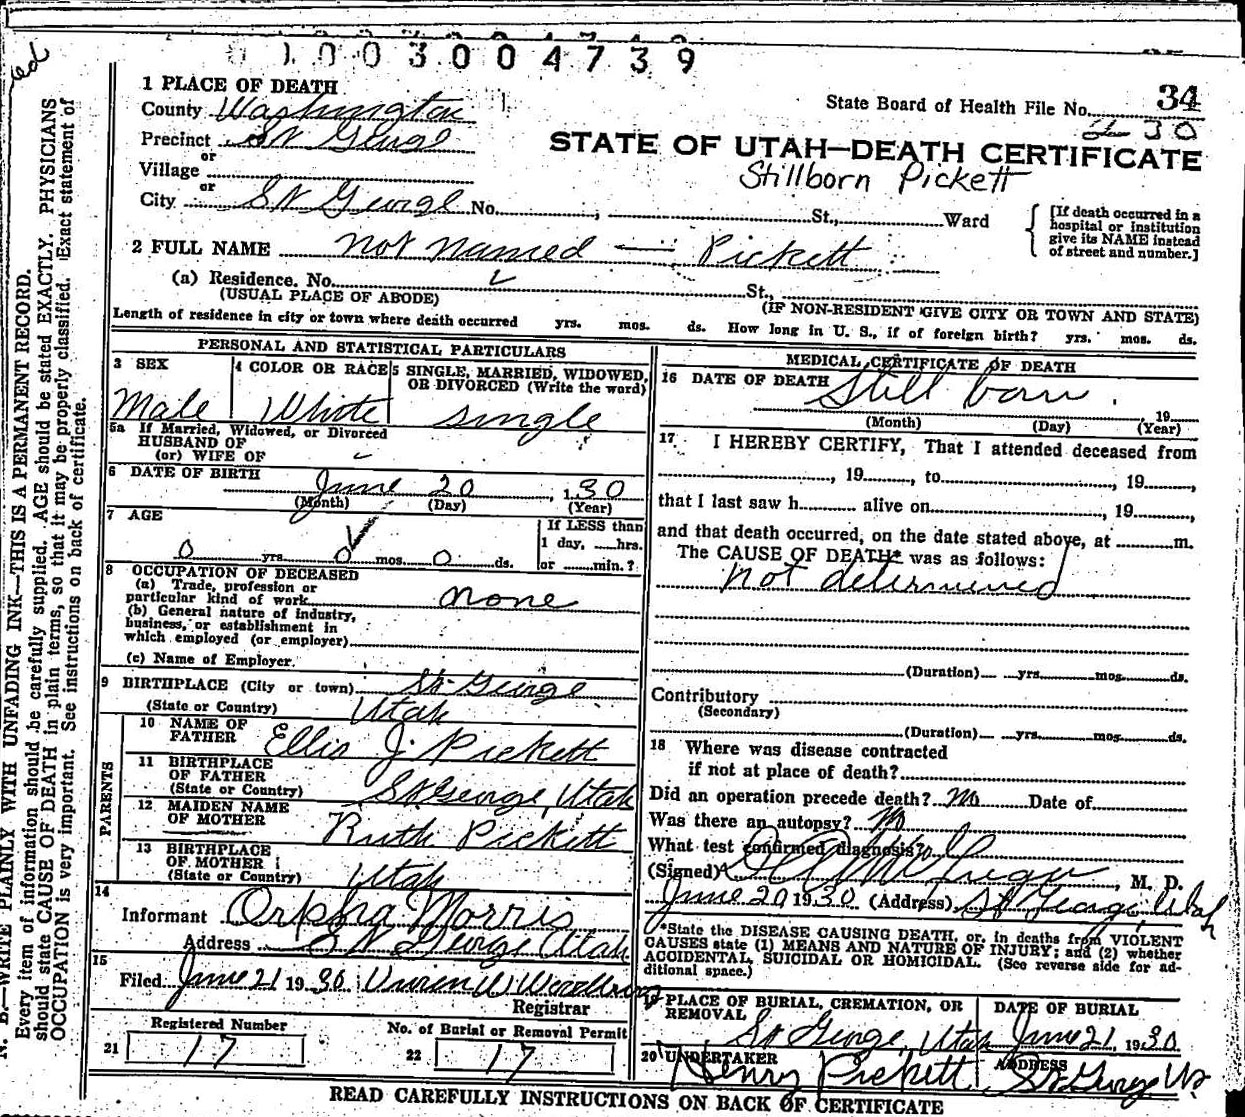 1003004739
1 PLACE OF DEATH
County Washington
State Board of Health File No. 34
230
Precinct St George
STATE OF UTAH—DEATH CERTIFICATE
or
Village
Stillborn Pickett
or
City St George No. ; St., Ward
[If death occurred in a
hospital or institution
give its NAME instead
of street and number.]
2 FULL NAME not named — Pickett
(a) Residence. No. St.,
(USUAL PLACE OF ABODE)
(IF NON-RESIDENT GIVE CITY OR TOWN AND STATE)
Length of residence in city or town where death occurred yrs. mos. ds. How long in U. S., if of foreign birth? yrs. mos. ds.
PERSONAL AND STATISTICAL PARTICULARS
3 SEX
4 COLOR OR RACE
5 SINGLE, MARRIED, WIDOWED,
OR DIVORCED (Write the word)
Male White single
5a If Married, Widowed, or Divorced
HUSBAND OF
(or) WIFE OF
6 DATE OF BIRTH
June 20, 1930
(Month) (Day) (Year)
7 AGE
If LESS than
1 day, hrs.
0 yrs. 0 mos. 0 ds. or min.?
8 OCCUPATION OF DECEASED
(a) Trade, profession or
particular kind of work none
(b) General nature of industry,
business, or establishment in
which employed (or employer)
(c) Name of Employer.
9 BIRTHPLACE (City or town) St George
(State or Country) Utah
PARENTS
10 NAME OF
FATHER Ellis J. Pickett
11 BIRTHPLACE
OF FATHER
(State or Country) St George, Utah
12 MAIDEN NAME
OF MOTHER Ruth Pickett
13 BIRTHPLACE
OF MOTHER
(State or Country) Utah
14
Informant Orpha Morris
Address St George Utah
15
Filed June 21 1930
Registrar
Registered Number
21 17
No. of Burial or Removal Permit
22 17
MEDICAL CERTIFICATE OF DEATH
16 DATE OF DEATH Still born.
, 19
(Month) (Day) (Year)
17 I HEREBY CERTIFY, That I attended deceased from
, 19, to , 19,
that I last saw h alive on , 19,
and that death occurred, on the date stated above, at m.
The CAUSE OF DEATH* was as follows:
not determined
(Duration) yrs. mos. ds.
Contributory
(Secondary)
(Duration) yrs. mos. ds.
18 Where was disease contracted
if not at place of death?
Did an operation precede death? No Date of
Was there an autopsy? No
What test confirmed diagnosis?
(Signed) McGregor, M. D.
June 20 1930 (Address) St George, Utah
*State the DISEASE CAUSING DEATH, or, in deaths from VIOLENT
CAUSES state (1) MEANS AND NATURE OF INJURY; and (2) whether
ACCIDENTAL, SUICIDAL OR HOMICIDAL. (See reverse side for ad-
ditional space.)
19 PLACE OF BURIAL, CREMATION, OR
REMOVAL
St George, Utah
DATE OF BURIAL
June 21 1930
20 UNDERTAKER
Henry Pickett
ADDRESS
St George Ut
READ CAREFULLY INSTRUCTIONS ON BACK OF CERTIFICATE
N. B.—WRITE PLAINLY WITH UNFADING INK—THIS IS A PERMANENT RECORD.
Every item of information should be carefully supplied. AGE should be stated EXACTLY. PHYSICIANS
should state CAUSE OF DEATH in plain terms, so that it may be properly classified. Exact statement of
OCCUPATION is very important. See instructions on back of certificate.